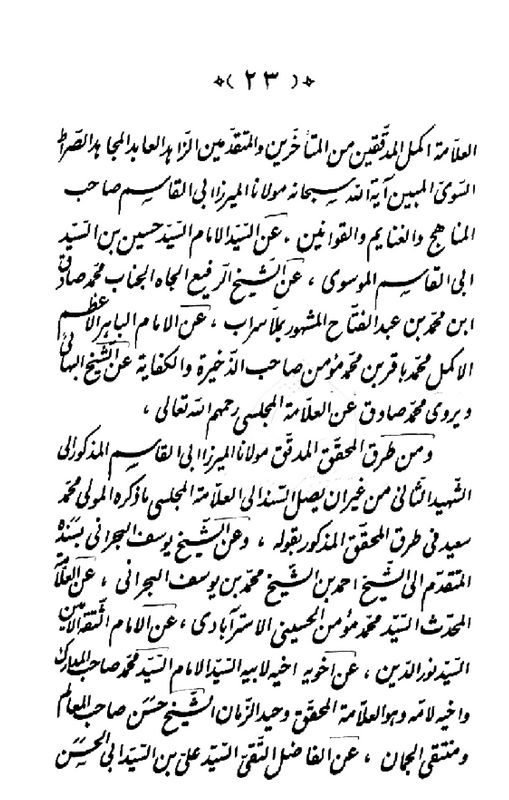 (٢٣)
العلّامة اكمل المدقّقين من المتأخّرين والمتقدّمين الزاهد العابد المجاهد الصراط
السّوىّ المبين آية اللّه سبحانه مولانا الميرزا ابى القاسم صاحب
المناهج والغنايم والقوانين ، عن السّيد الامام السّيد حسين بن السّيد
ابى القاسم الموسوى ، عن الشّيخ الرفيع الجاه الجناب محمّد صادق
ابن محمّد بن عبد الفتّاح المشهور بملّا سراب ، عن الامام الباهر الاعظم
الاكمل محمّد باقر بن محمّد مؤمن صاحب الذّخيرة والكفاية عن الشّيخ البهائىّ
ويروى محمّد صادق عن العلّامة المجلسى رحمهم اللّه تعالى ،
ومن طرق المحقّق المدقّق مولانا الميرزا ابى القاسم المذكور الى
الشّهيد الثّانى من غير ان يصل السّند الى العلّامة المجلسى ما ذكره المولى محمّد
سعيد فى طرق المحقّق المذكور بقوله ، وعن الشّيخ يوسف البحرانى بسنده
المتقدّم الى الشّيخ احمد بن الشّيخ محمّد بن يوسف البحرانى ، عن العلّامة
المحدّث السّيد محمّد مؤمن الحسينى الاسترآبادى ، عن الامام الثّقة الامين
السّيد نور الدّين ، عن اخويه اخيه لابيه السّيد الامام السّيد محمّد صاحب المدارك
واخيه لامّه وهو العلّامة المحقّق وحيد الزّمان الشّيخ حسن صاحب المعالم
ومنتقى الجمان ، عن الفاضل التّقىّ السّيد علىّ بن السّيد ابى الحسن